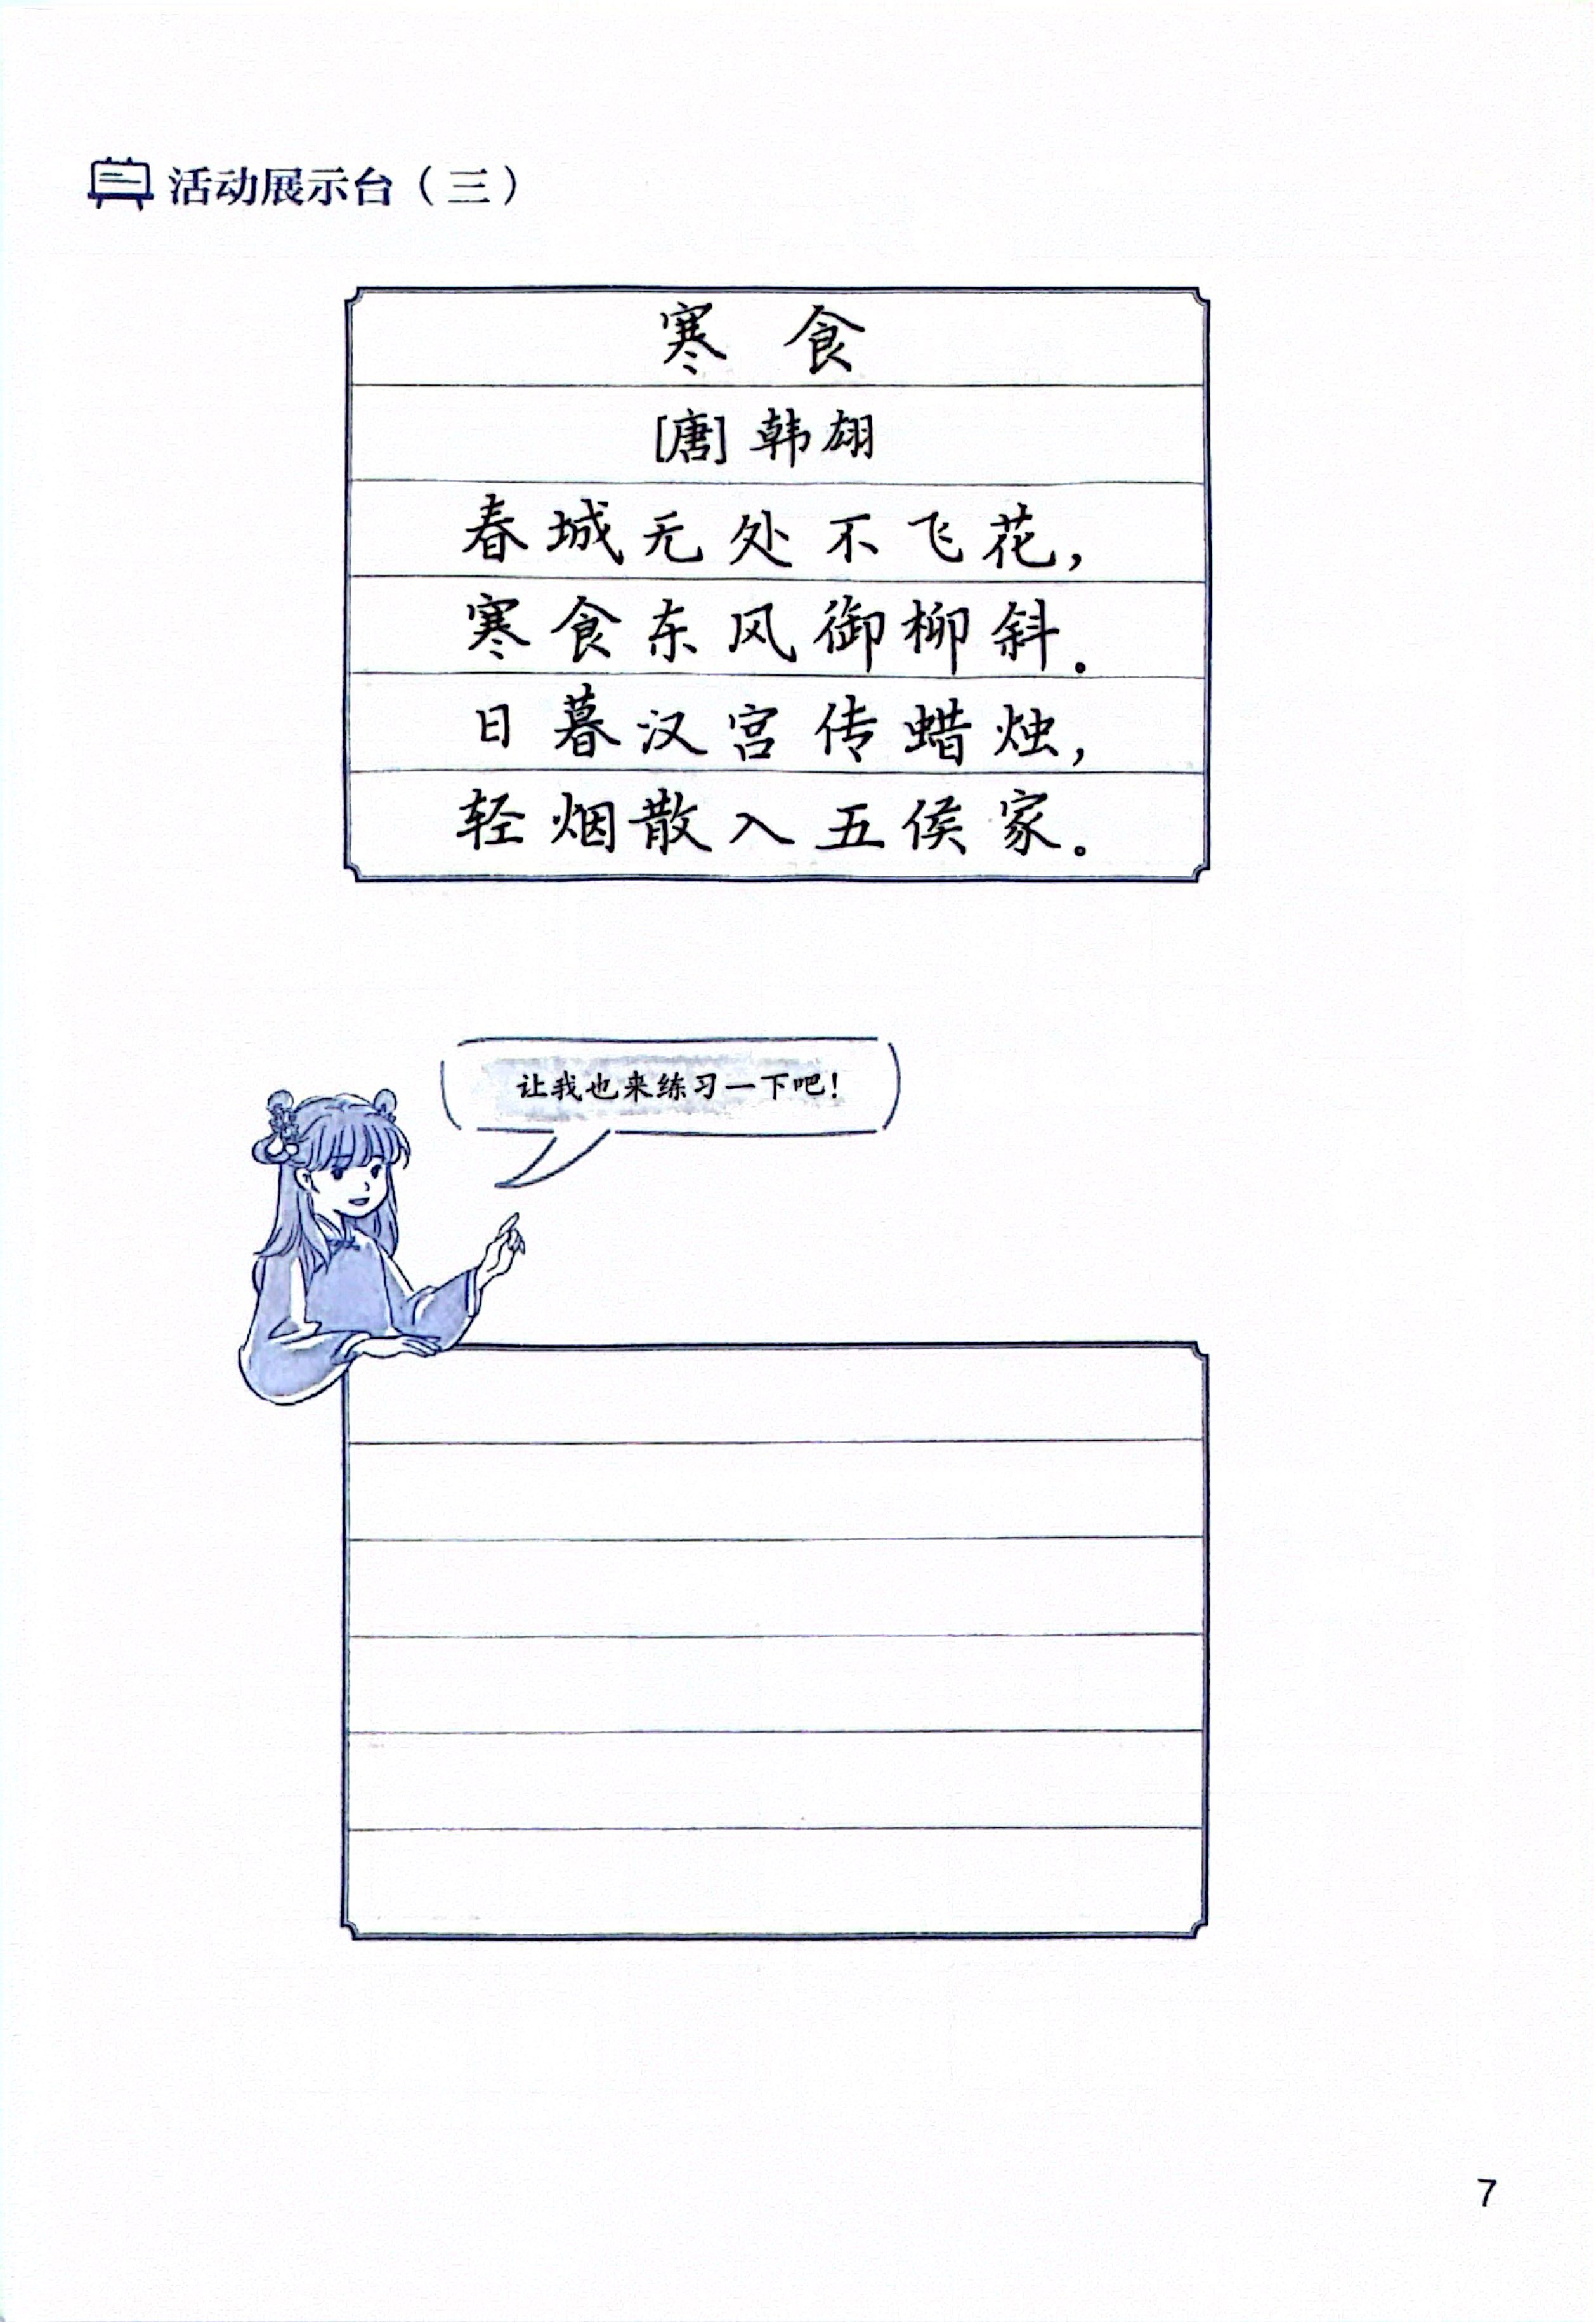 活动展示台（三）
寒食
[唐] 韩翃
春城无处不飞花，
寒食东风御柳斜。
日暮汉宫传蜡烛，
轻烟散入五侯家。
让我也来练习一下吧！
7